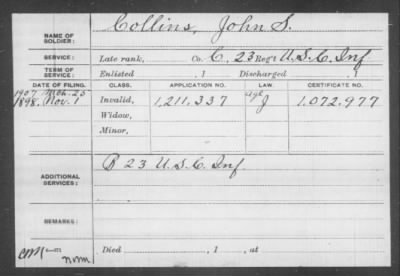 NAME OF SOLDIER: Collins, John S.
SERVICE: Late rank, Co. C, 23 Reg't U.S.C. Inf
TERM OF SERVICE: Enlisted , 1 Discharged , 1
DATE OF FILING. CLASS. APPLICATION NO. LAW. CERTIFICATE NO.
1907 Mch. 25
1898, Nov. 1 Invalid, 1,211,337 J 1,072,977
Widow,
Minor,
ADDITIONAL SERVICES: B 23 U.S.C. Inf
REMARKS:
Died , 1 , at